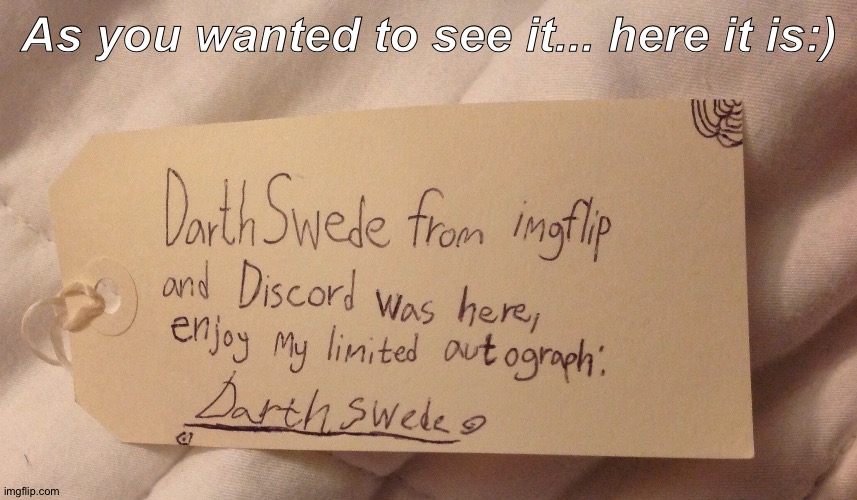 As you wanted to see it... here it is:)
DarthSwede from imgflip
and Discord was here,
enjoy my limited autograph:
Darth Swede
imgflip.com